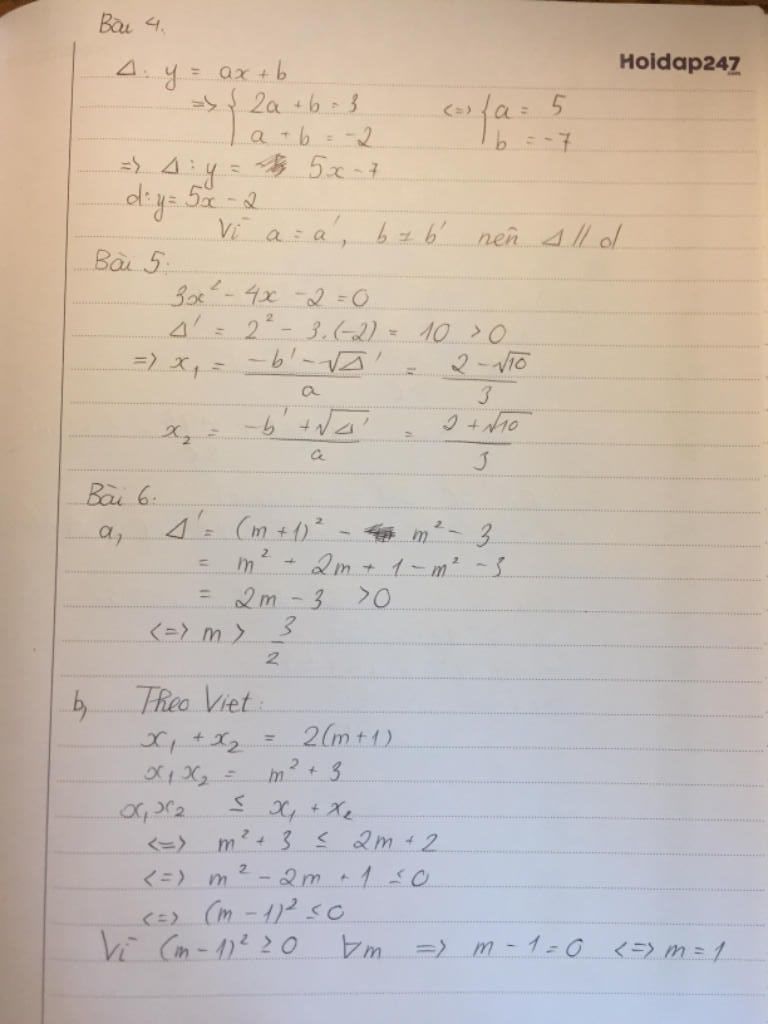 Bài 4.
Hoidap247.com
Δ: y = ax + b
=> { 2a + b = 3 <=> { a = 5
a + b = -2 b = -7
=> Δ: y = 5x - 7
d: y = 5x - 2
Vì a = a', b ≠ b' nên Δ // d
Bài 5:
3x² - 4x - 2 = 0
Δ' = 2² - 3.(-2) = 10 > 0
=> x₁ = (-b' - √Δ')/a = (2 - √10)/3
x₂ = (-b' + √Δ')/a = (2 + √10)/3
Bài 6:
a, Δ' = (m + 1)² - m² - 3
= m² + 2m + 1 - m² - 3
= 2m - 3 > 0
<=> m > 3/2
b, Theo Viet:
x₁ + x₂ = 2(m+1)
x₁x₂ = m² + 3
x₁x₂ ≤ x₁ + x₂
<=> m² + 3 ≤ 2m + 2
<=> m² - 2m + 1 ≤ 0
<=> (m - 1)² ≤ 0
Vì (m - 1)² ≥ 0 ∀m => m - 1 = 0 <=> m = 1